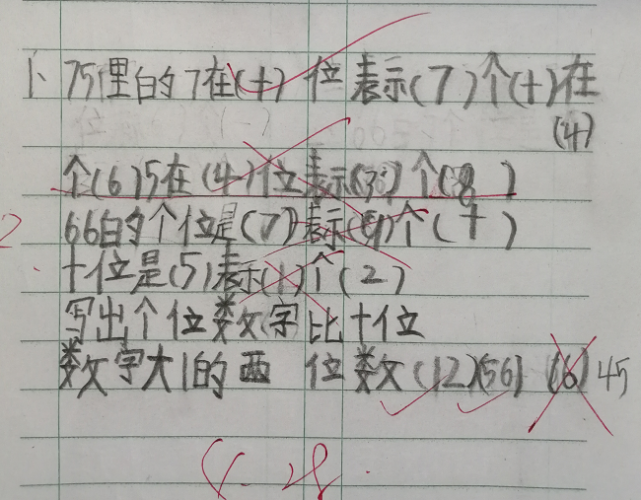 1、75里的7在(十)位表示(7)个(十)在
(4)
个(6)5在(4)位表示(3)个(8)
66的个位是(7)表示(9)个(十)
2.
十位是(5)表示(1)个(2)
写出个位数字比十位
数字大1的两位数(12)(56)(6)45
4.28.